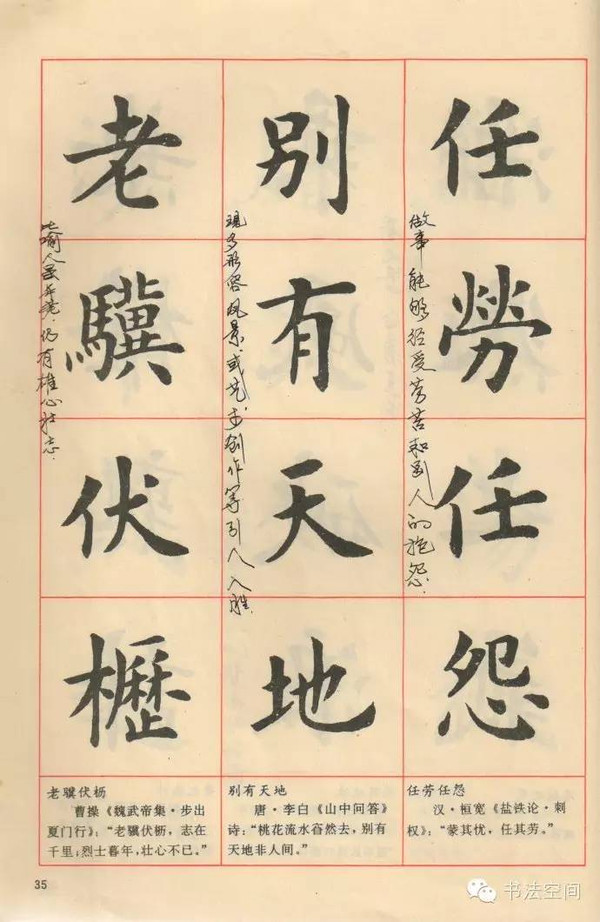 任勞任怨
做事能够经受劳苦和别人的抱怨.
别有天地
现多形容风景或艺术创作等引人入胜.
老驥伏櫪
比喻人虽年老.仍有雄心壮志.
老骥伏枥
曹操《魏武帝集·步出
夏门行》：“老骥伏枥，志在
千里；烈士暮年，壮心不已。”
别有天地
唐·李白《山中问答》
诗：“桃花流水窅然去，别有
天地非人间。”
任劳任怨
汉·桓宽《盐铁论·刺
权》：“蒙其忧，任其劳。”
35
书法空间